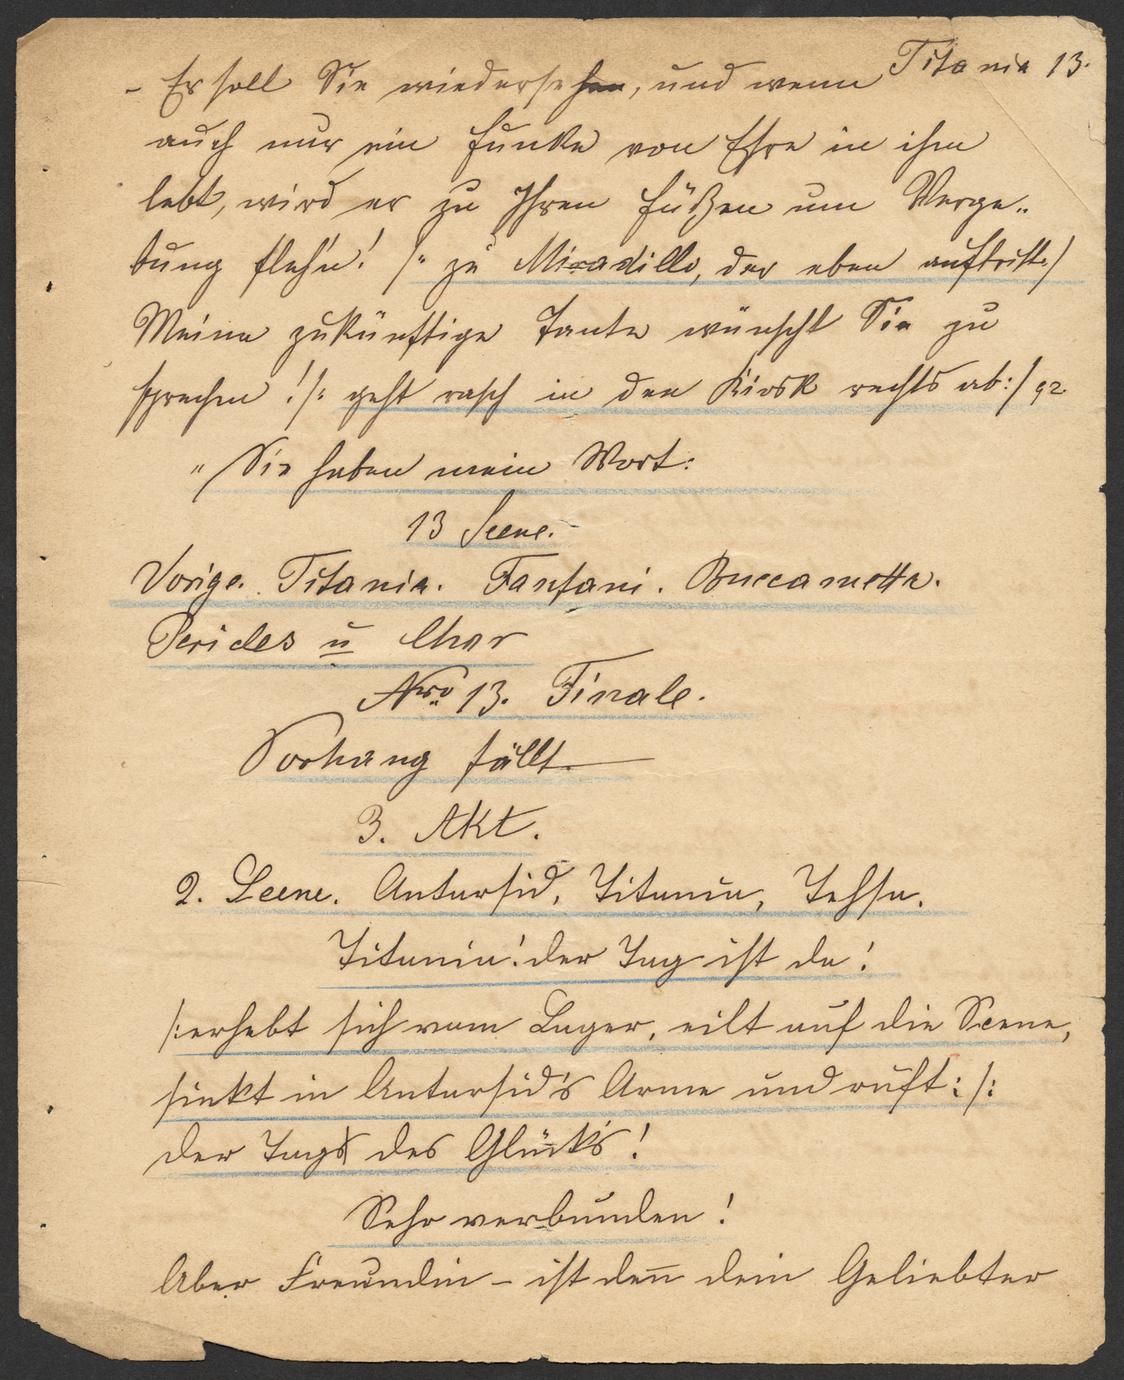 Titania 13.
- Er soll Sie wiedersehen, und wenn
auch nur ein Funke von Ehre in ihm
lebt, wird er zu Ihren Füßen um Verge„
bung fleh'n! /: zu Miradillo, der eben auftritt:/
Meine zukünftige Tante wünscht Sie zu
sprechen! /: geht rasch in den Kiosk rechts ab:/
"Sie haben mein Wort:
13 Scene.
Vorige. Titania. Fanfani. Buccametta.
Pericles u Chor
Nro 13. Finale.
Vorhang fällt.
3. Akt.
2. Scene. Antarsid, Titania, Tessa.
Titania! der Tag ist da!
/: erhebt sich vom Lager, eilt auf die Scene,
sinkt in Antarsid's Arme und ruft: /:
der Tag des Glück's!
Sehr verbunden!
Aber Freundin - ist den̅ dein Geliebter